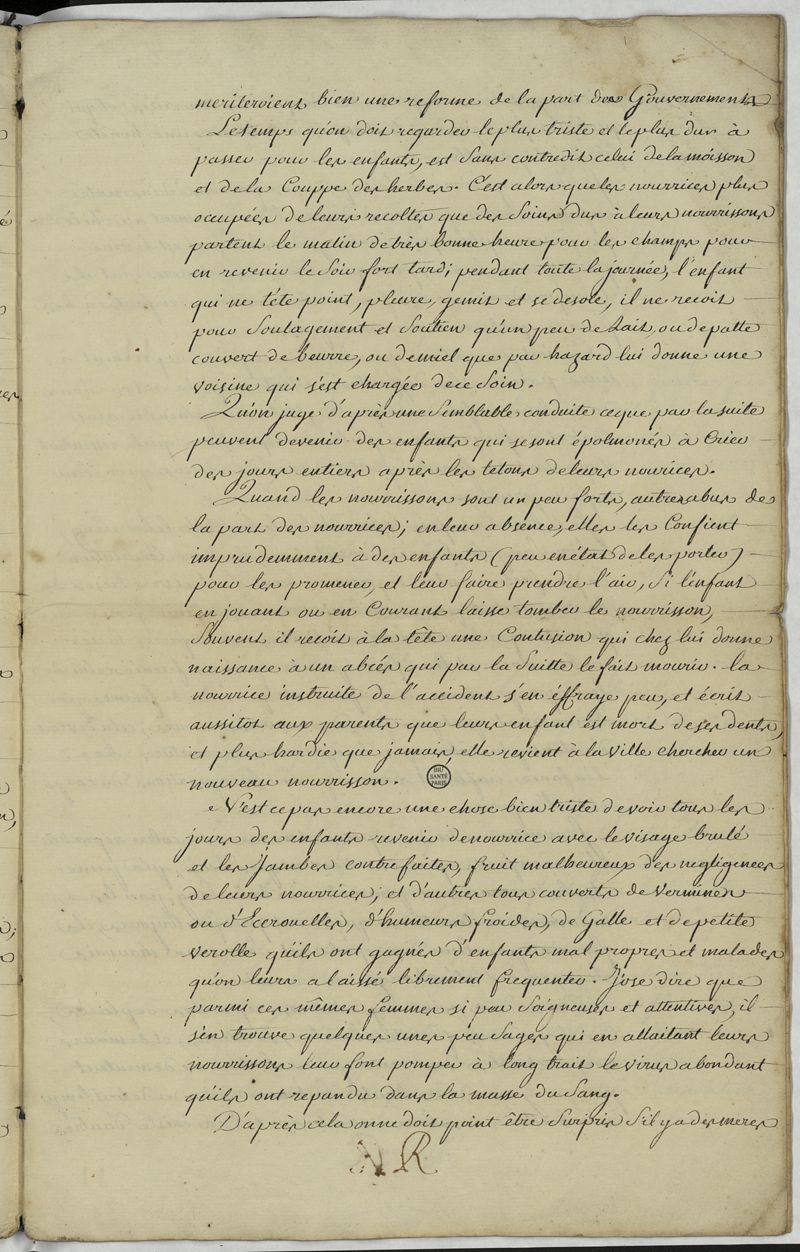 meriteroient bien une reforme de la part des Gouvernements
Le temps qu'on doit regarder le plus triste et le plus dur à
passer pour les enfants, est sans contredit celui de la moisson
et de la Couppe des herbes. C'est alors que les nourrices plus
occupées de leurs recoltes que des Soins dus à leurs nourrissons
partent le matin de très bonne heure pour les champs pour
en revenir le Soir fort tard; pendant toute la journée, l'enfant
qui ne tête point, pleure, gemit et se desole, il ne recoit
pour Soulagement et Soutien qu'un peu de Lait, ou de patte
couvert de beurre, ou de miel que par hazard lui donne une
voisine qui s'est chargée de ce Soin.
Qu'on juge d'après une Semblable conduite ce que par la suite
peuvent devenir des enfants qui se sont époumonés à Crier
des jours entiers après les tetons de leurs nourices.
Quand les nourrissons sont un peu forts, autres abus de
la part des nourrices; en leur absence, elles les Confient
imprudemment à des enfants (peu en état de les porter)
pour les promener, et leur faire prendre l'air, Si l'enfant
en jouant ou en Courant laisse tomber le nourrisson,
Souvent il recoit à la tête une Contusion qui chez lui donne
naissance à un abcés qui par la Suitte le fait mourir. la
nourrice instruite de l'accident s'en éffraye peu, et écrit
aussitot aux parents que leurs enfant est mort de ses dents,
et plus hardie que jamais, elle revient à la Ville chercher un
nouveau nourrisson.
BIU
SANTÉ
PARIS
N'est ce pas encore une chose bien triste de voir tous les
jours des enfants revenir de nourrice avec le visage brulé
et les Jambes contrefaites, fruit malheureux des negligences
de leurs nourrices; et d'autres tous couverts de Vermines
ou d'Ecrouelles, d'humeurs froides, de Galle et de petite
Verolle qu'ils ont gagnés d'enfants mal propres et malades
qu'on leurs a laissé librement frequenter. J'ose dire que
parmi ces mêmes femmes si peu Soigneuses et attentives, il
s'en trouve quelques unes peu Sages qui en allaitant leurs
nourrissons leur font pomper à long trait le virus abondant
qu'ils ont repandu dans la masse du Sang.
D'après cela on ne doit point être Surpris S'il y a des meres
NR